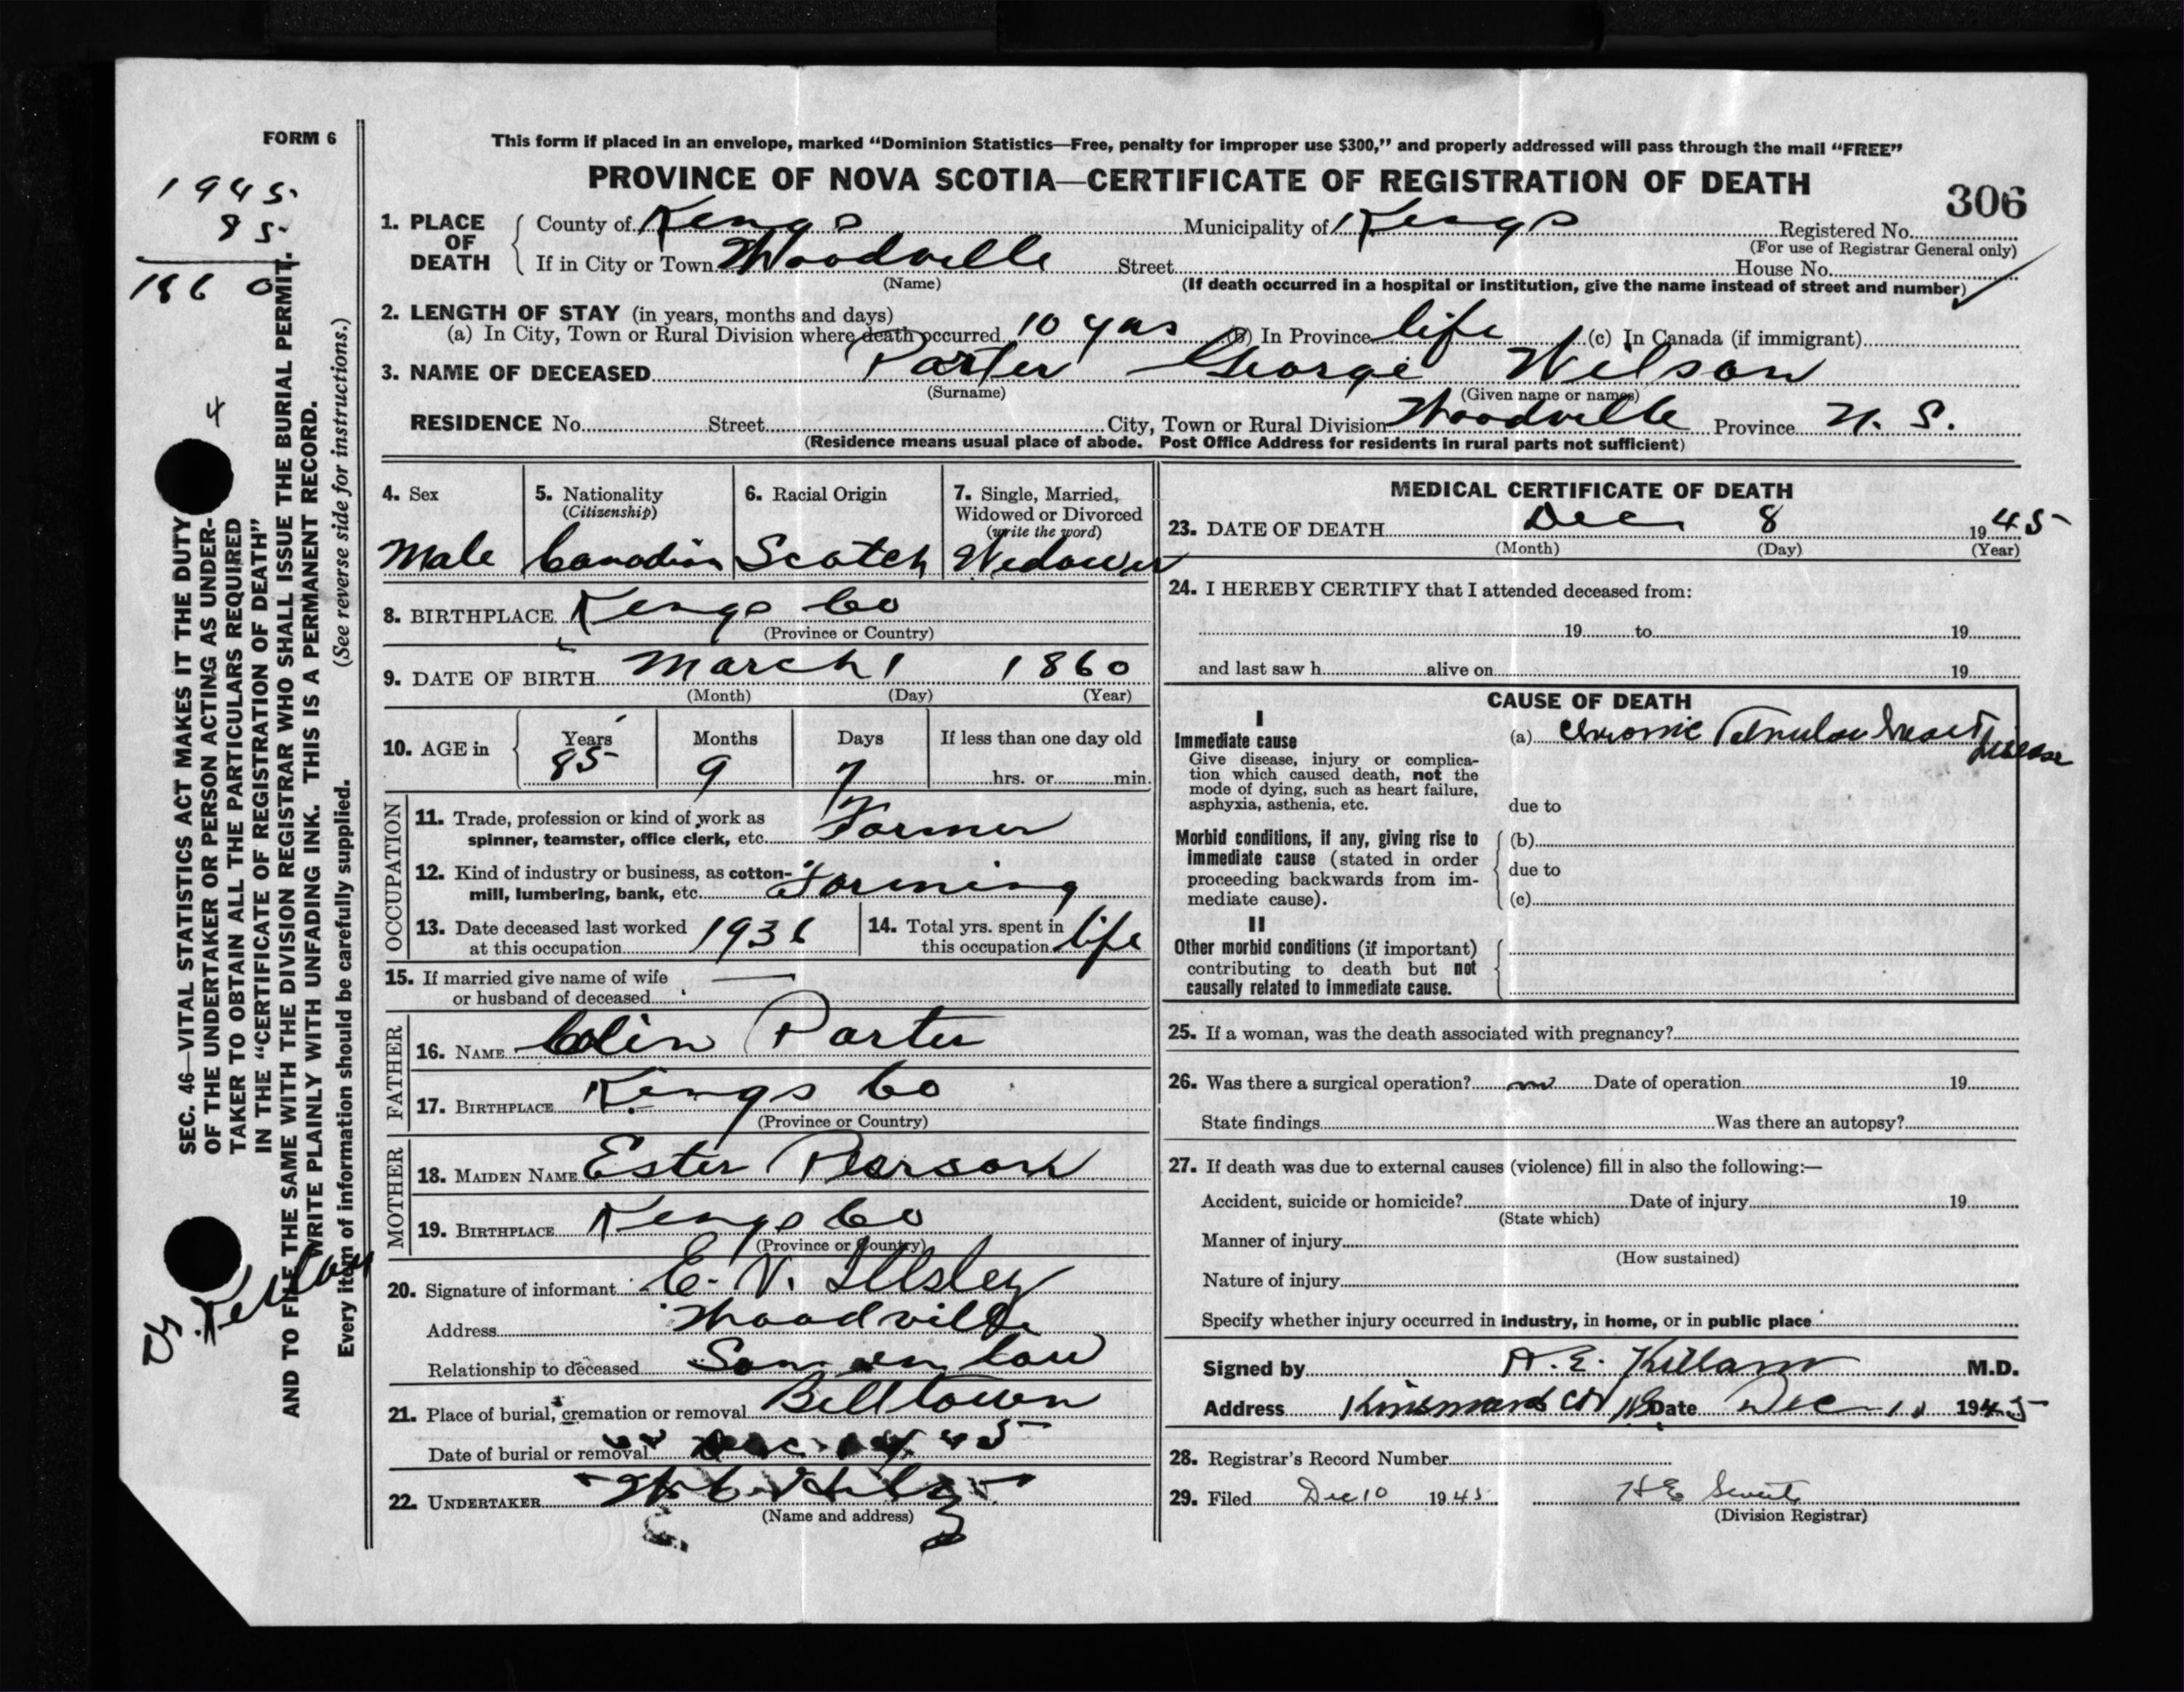 FORM 6
This form if placed in an envelope, marked “Dominion Statistics—Free, penalty for improper use $300,” and properly addressed will pass through the mail “FREE”
PROVINCE OF NOVA SCOTIA—CERTIFICATE OF REGISTRATION OF DEATH
306
1945
85
1860
4
SEC. 46—VITAL STATISTICS ACT MAKES IT THE DUTY
OF THE UNDERTAKER OR PERSON ACTING AS UNDER-
TAKER TO OBTAIN ALL THE PARTICULARS REQUIRED
IN THE “CERTIFICATE OF REGISTRATION OF DEATH”
AND TO FILE THE SAME WITH THE DIVISION REGISTRAR WHO SHALL ISSUE THE BURIAL PERMIT.
WRITE PLAINLY WITH UNFADING INK. THIS IS A PERMANENT RECORD.
Every item of information should be carefully supplied. (See reverse side for instructions.)
1. PLACE OF DEATH
County of Kings Municipality of Kings Registered No.
(For use of Registrar General only)
If in City or Town Woodville Street House No.
(Name) (If death occurred in a hospital or institution, give the name instead of street and number)
2. LENGTH OF STAY (in years, months and days)
(a) In City, Town or Rural Division where death occurred 10 yrs (b) In Province life (c) In Canada (if immigrant)
3. NAME OF DECEASED Porter George Wilson
(Surname) (Given name or names)
RESIDENCE No. Street City, Town or Rural Division Woodville Province N. S.
(Residence means usual place of abode. Post Office Address for residents in rural parts not sufficient)
4. Sex
Male
5. Nationality
(Citizenship)
Canadian
6. Racial Origin
Scotch
7. Single, Married,
Widowed or Divorced
(write the word)
Widower
8. BIRTHPLACE Kings Co
(Province or Country)
9. DATE OF BIRTH March 1 1860
(Month) (Day) (Year)
10. AGE in
Years Months Days If less than one day old
85 9 7 hrs. or min.
OCCUPATION
11. Trade, profession or kind of work as
spinner, teamster, office clerk, etc. Farmer
12. Kind of industry or business, as cotton-
mill, lumbering, bank, etc. Farming
13. Date deceased last worked
at this occupation 1936
14. Total yrs. spent in
this occupation life
15. If married give name of wife
or husband of deceased —
FATHER
16. NAME Colin Porter
17. BIRTHPLACE Kings Co
(Province or Country)
MOTHER
18. MAIDEN NAME Ester Pearson
19. BIRTHPLACE Kings Co
(Province or Country)
20. Signature of informant E. V. Illsley
Address Woodville
Relationship to deceased Son in law
21. Place of burial, cremation or removal Billtown
Date of burial or removal Dec 45
22. UNDERTAKER
(Name and address)
MEDICAL CERTIFICATE OF DEATH
23. DATE OF DEATH Dec 8 1945
(Month) (Day) (Year)
24. I HEREBY CERTIFY that I attended deceased from:
19 to 19
and last saw h alive on 19
CAUSE OF DEATH
I
Immediate cause
Give disease, injury or complica-
tion which caused death, not the
mode of dying, such as heart failure,
asphyxia, asthenia, etc.
(a) Chronic Valvular heart disease
due to
Morbid conditions, if any, giving rise to
immediate cause (stated in order
proceeding backwards from im-
mediate cause).
(b)
due to
(c)
II
Other morbid conditions (if important)
contributing to death but not
causally related to immediate cause.
25. If a woman, was the death associated with pregnancy?
26. Was there a surgical operation? no Date of operation 19
State findings Was there an autopsy?
27. If death was due to external causes (violence) fill in also the following:—
Accident, suicide or homicide? Date of injury 19
(State which)
Manner of injury
(How sustained)
Nature of injury
Specify whether injury occurred in industry, in home, or in public place
Signed by A. E. Killam M.D.
Address Kinsmans Cor NS Date Dec 1945
28. Registrar's Record Number
29. Filed Dec 10 1945 H E
(Division Registrar)